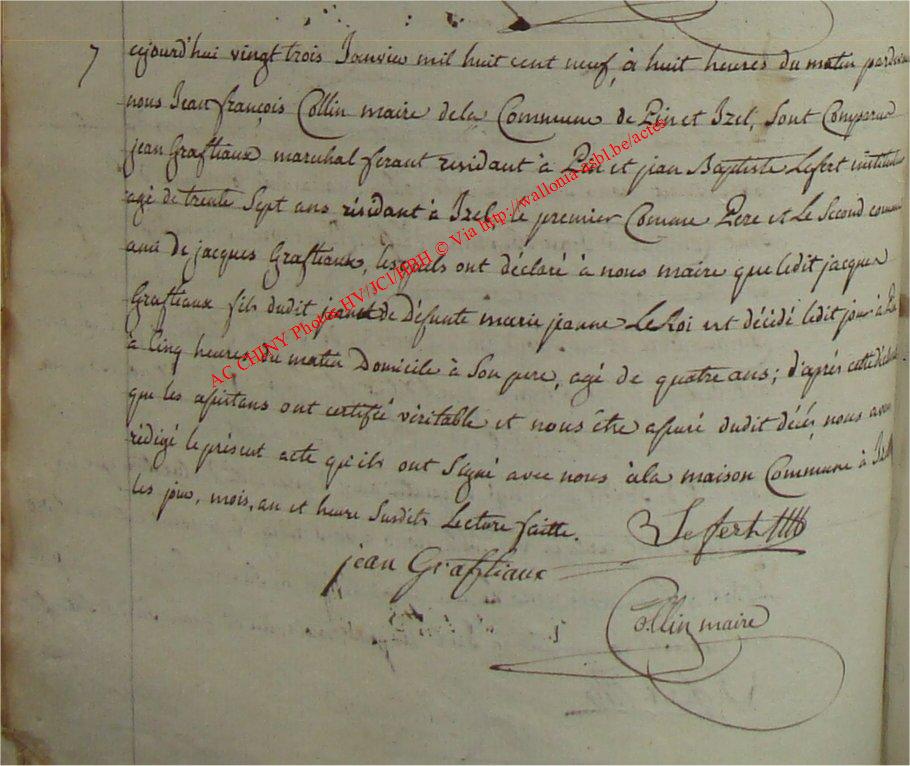 7 aujourd'hui vingt trois Janvier mil huit cent neuf, à huit heures du matin pardevant
nous Jean françois Collin maire dela Commune de Pin et Izel, sont Comparue
jean Graftiaux marechal ferant residant à Pin et jean Baptiste Lefert instituteur
agé de trente Sept ans résidant à Izel le premier Comme Pere et Le Second comme
ami de jacques Graftiaux, lesquels ont déclaré à nous maire que ledit jacques
Graftiaux fils dudit jean et de défunte marie jeanne LeRoi est décédé ledit jour à Pin
à Cinq heures du matin Domicile à Son pere, agé de quatre ans; d'après cette
que les ont certifié véritable et nous être dudit décés, nous avons
rédigé le présent acte qu'ils ont signé avec nous à la maison Commune à Izel
les jour, mois, an et heure Susdits Lecture faitte.
Lefert
jean Graftiaux
Collin maire
AC CHINY Photos HV/JCl/HBH © Via http://wallonia-asbl.be/actes